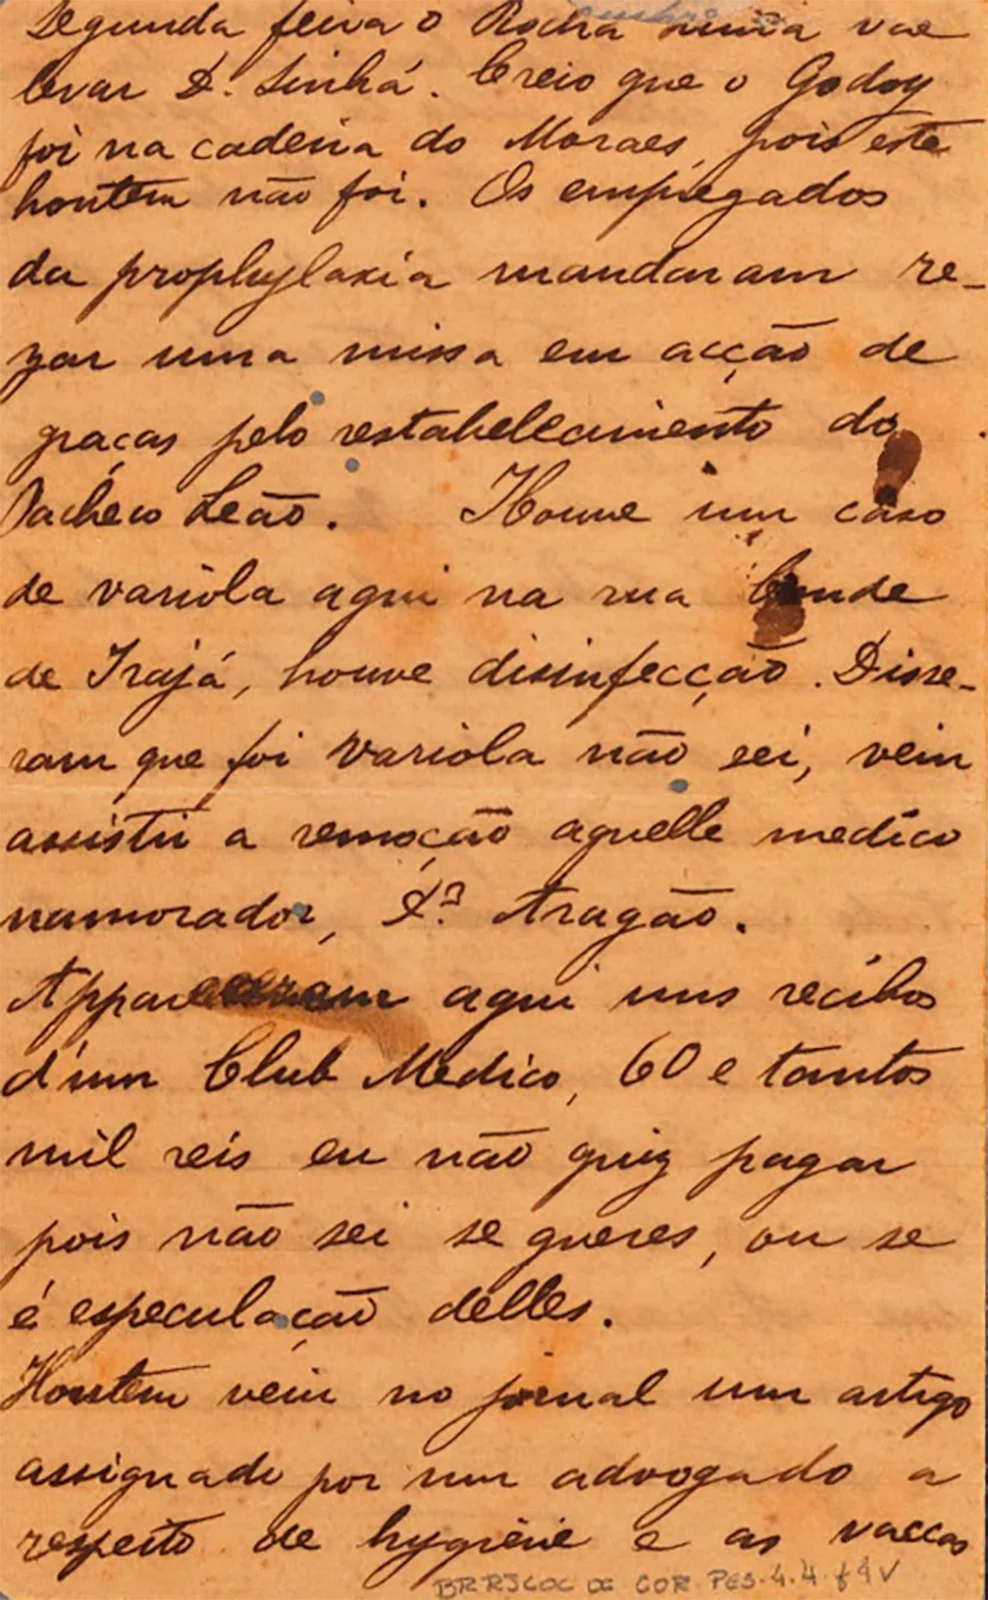 Segunda feira o Rocha vae
levar D. Sinhá. Creio que o Godoy
foi na cadeira do Moraes, pois este
hontem não foi. Os empregados
da prophylaxia mandaram re-
zar uma missa em acção de
graças pelo restabelecimento do
Pacheco Leão. Houve um caso
de variola aqui na rua Conde
de Irajá, houve disinfecção. Disse-
ram que foi variola não sei, vein
assistir a remoção aquelle medico
namorador, Dr. Aragão.
Appareceram aqui uns recibos
d'um Club Medico, 60 e tantos
mil reis eu não quiz pagar
pois não sei se queres, ou se
é especulação delles.
Hontem vein no jornal um artigo
assignado por um advogado a
respeito de hygiene e as vaccas
BR RJCOC OC COR PES.4.4.f4V